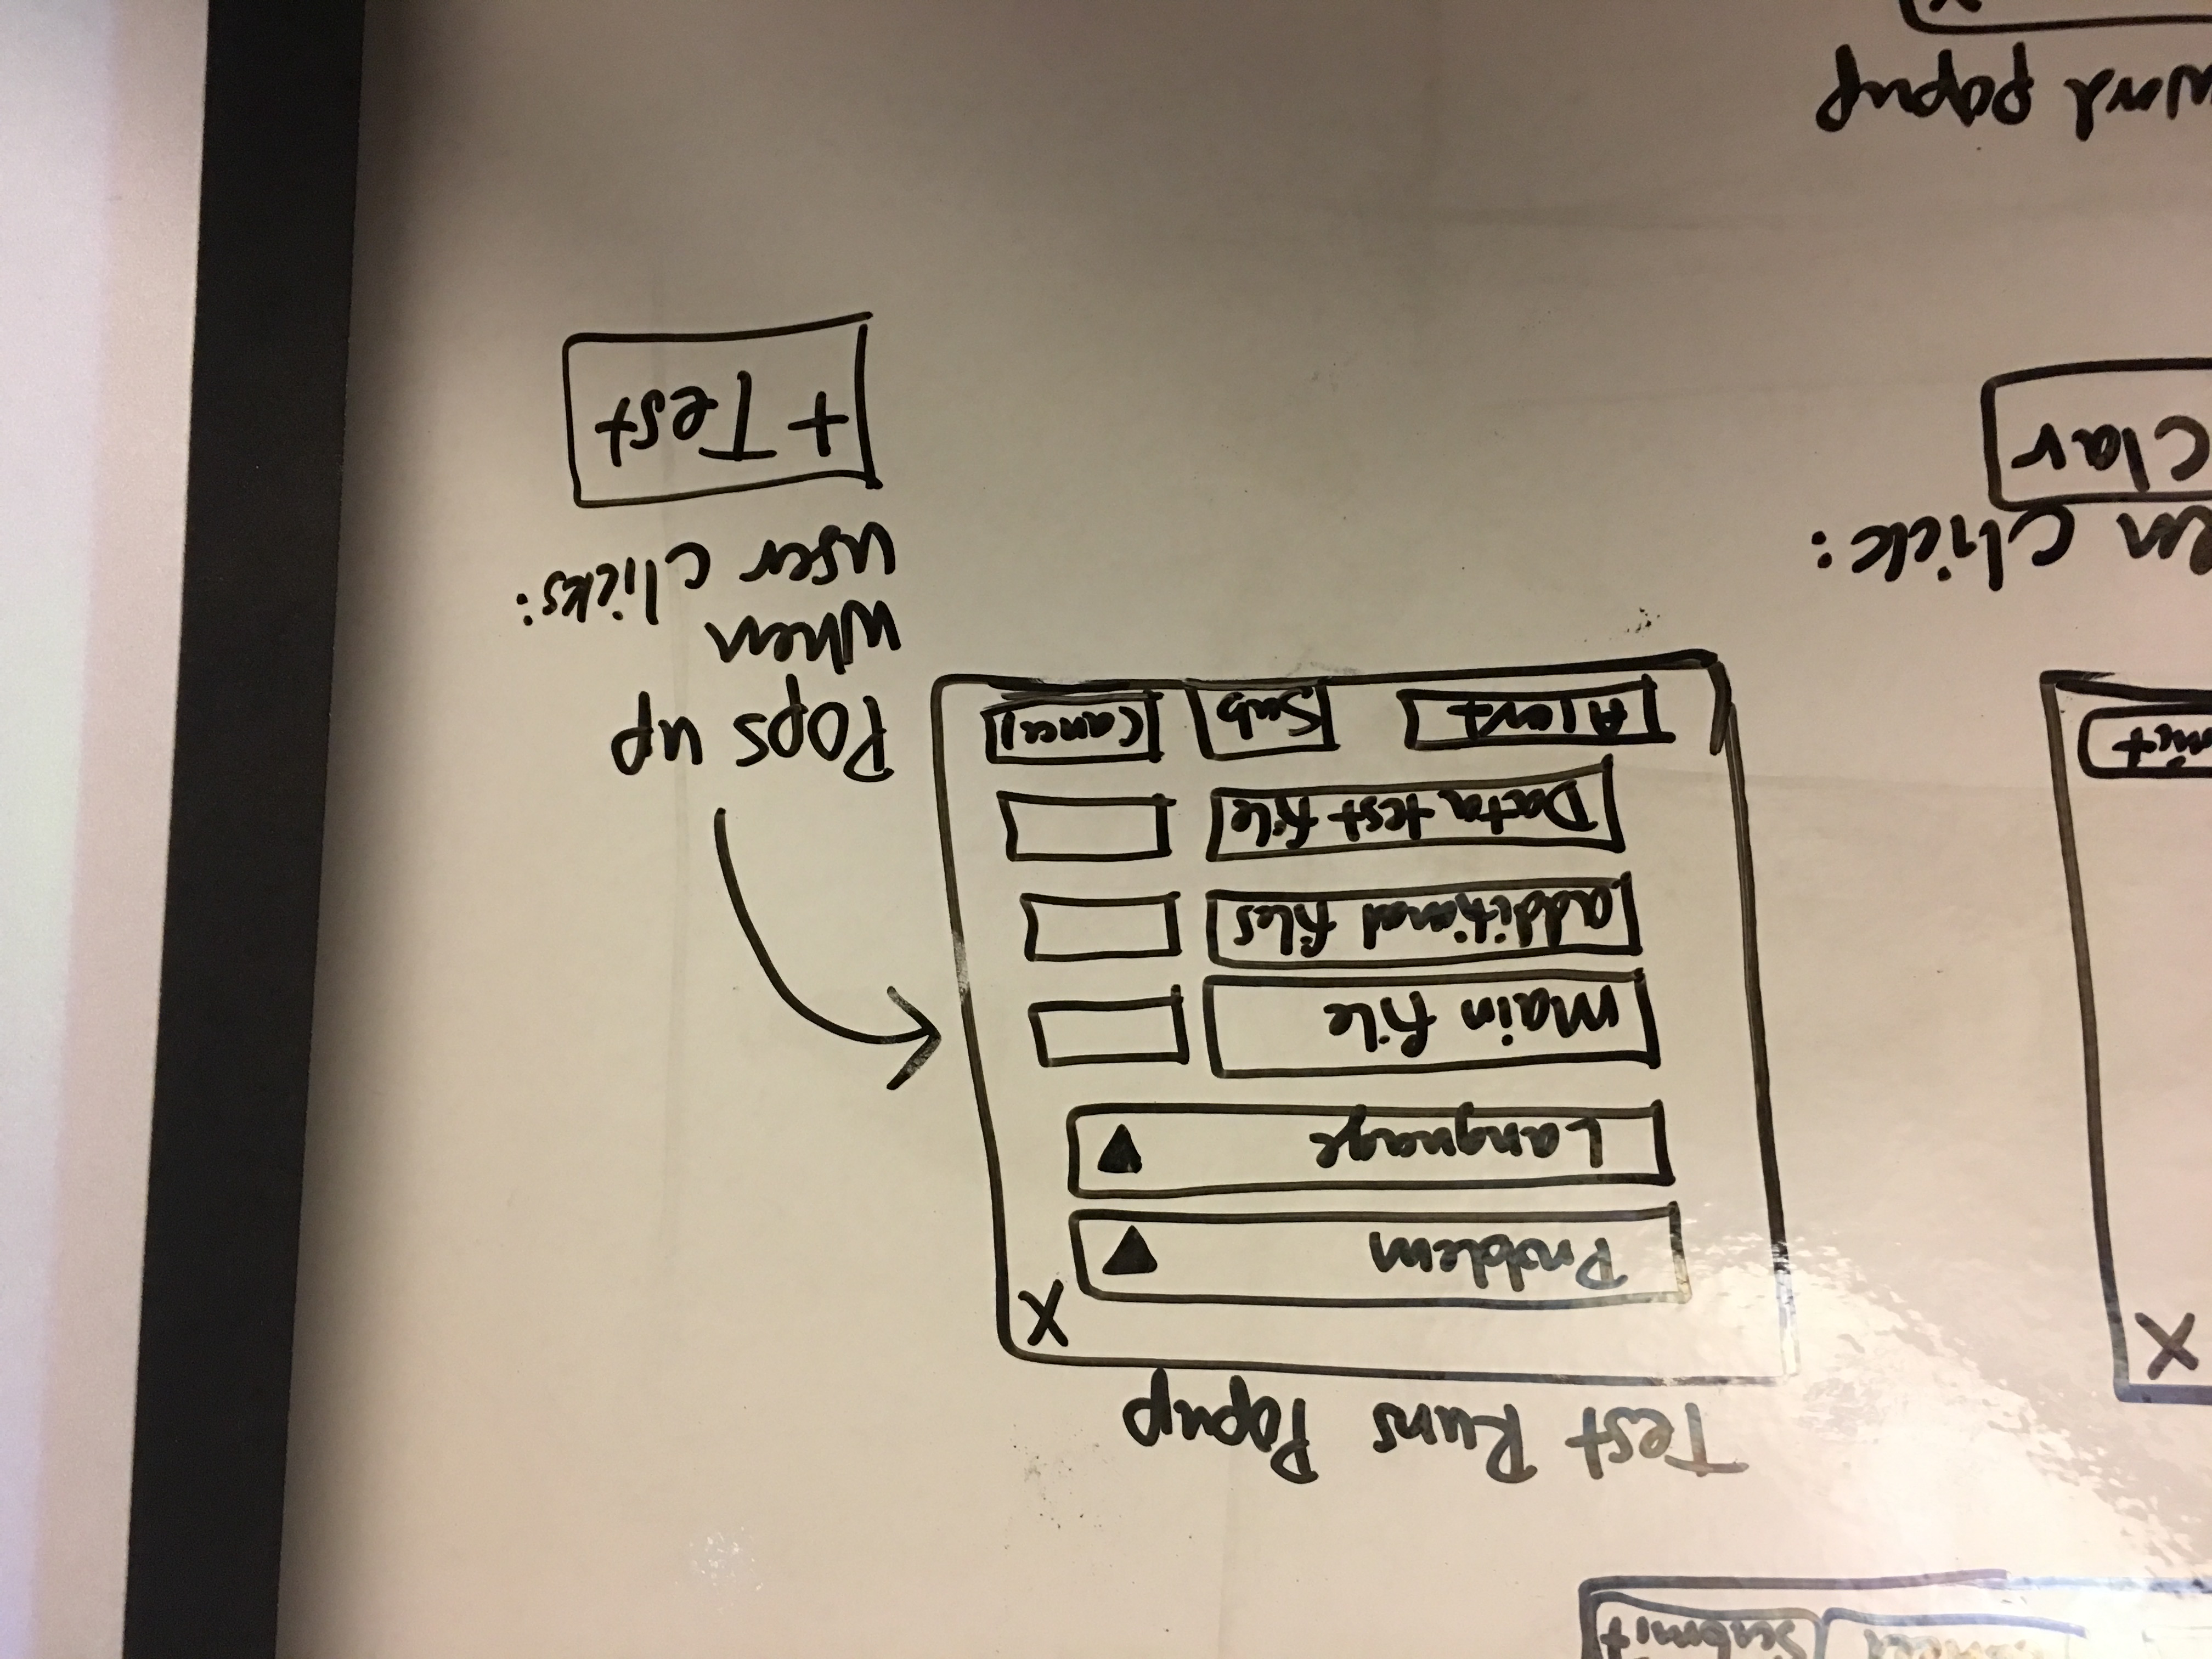 Submit
Test Runs Popup
X
X
Problem
Language
main file
additional files
Data test file
Alert Sub Cancel
Pops up
when
user clicks:
+ Test
click:
Clar
popup
X